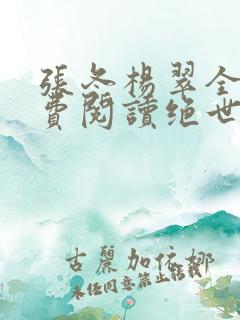 張冬楊翠全
費閱讀绝世
古麗加依娜
未经同意禁止转载